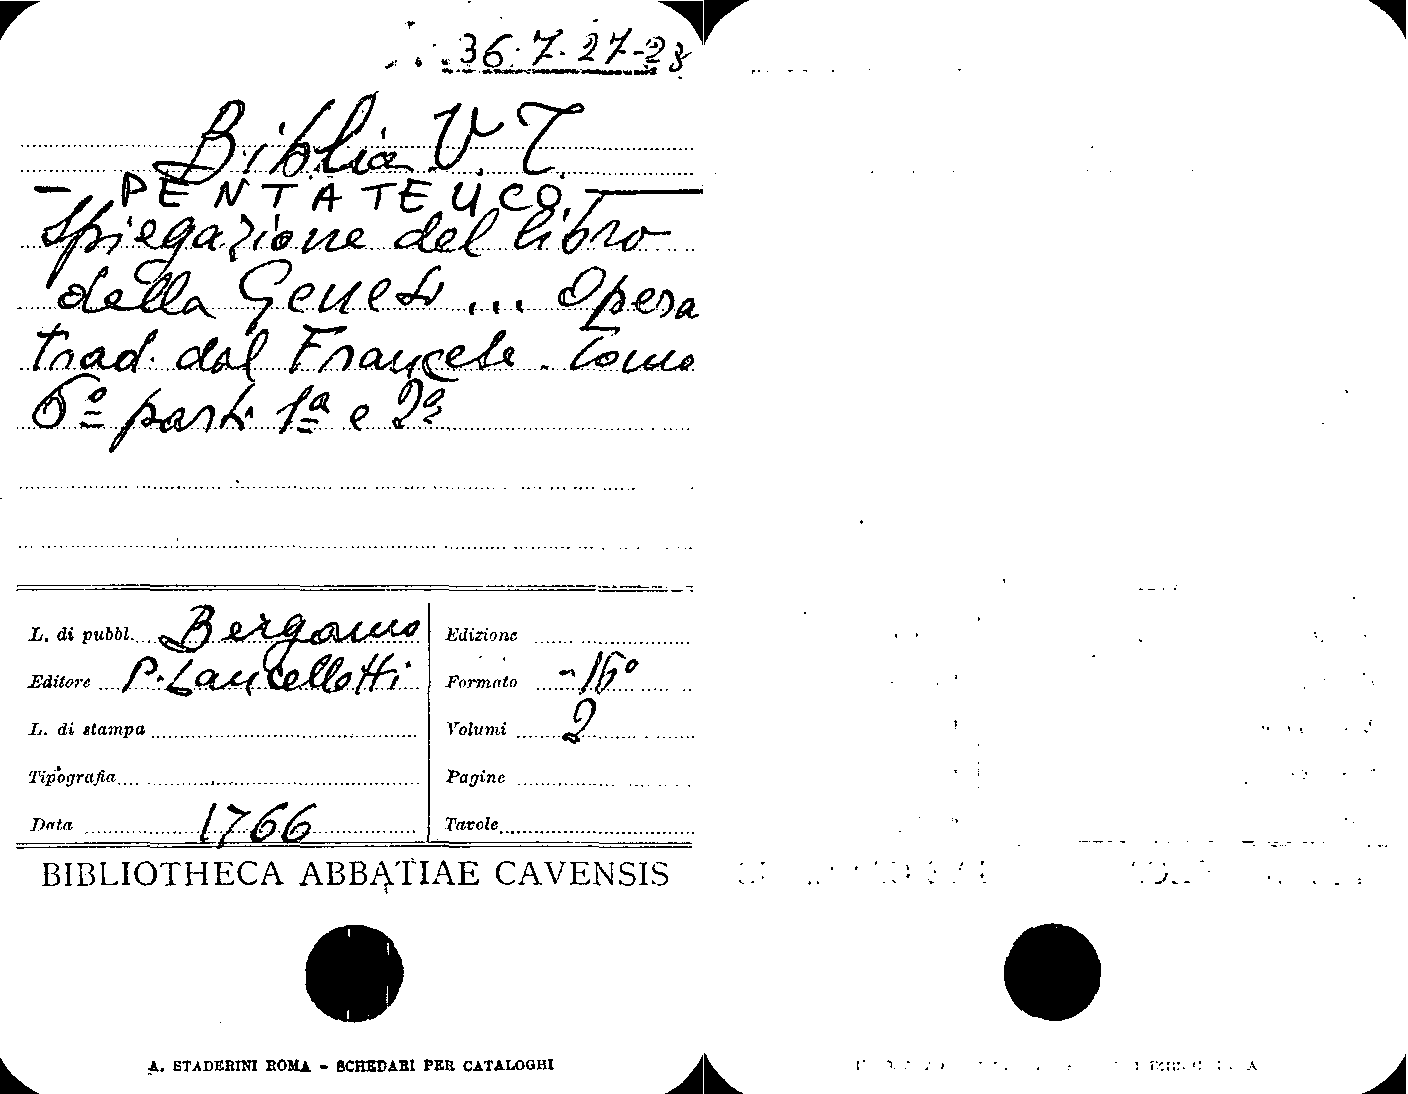 36.7.27-28
Biblia V. T.
- PENTATEUCO. -
Spiegazione del libro
della Genesi ... Opera
trad. dal Francese. Tomo
6º parti 1ª e 2ª
L. di pubbl. Bergamo
Editore P. Lancellotti
L. di stampa
Tipografia
Data 1766
Edizione
Formato -16º
Volumi 2
Pagine
Tavole
BIBLIOTHECA ABBATIAE CAVENSIS
A. STADERINI ROMA - SCHEDARI PER CATALOGHI